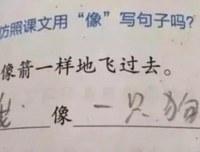 仿照课文用“像”写句子吗?
像箭一样地飞过去。
像 一只狗